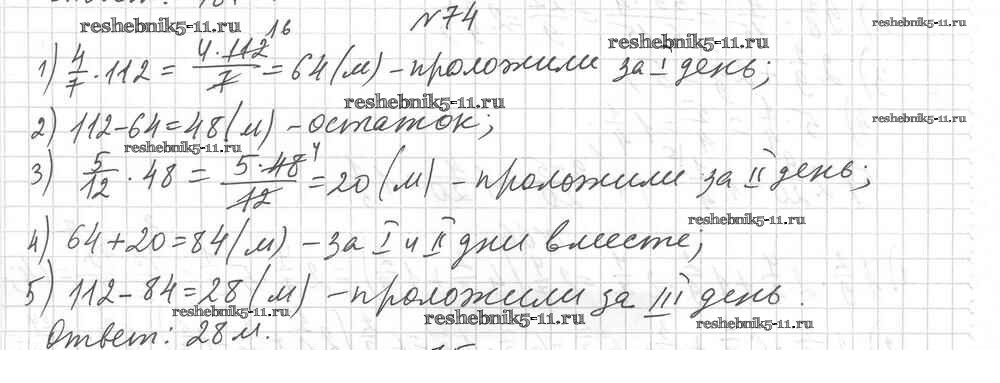 №74
reshebnik5-11.ru
reshebnik5-11.ru
reshebnik5-11.ru
1) 4/7 · 112 = 4·112/7 16 = 64 (м) – проложили за I день;
reshebnik5-11.ru
2) 112 – 64 = 48 (м) – остаток;
reshebnik5-11.ru
reshebnik5-11.ru
3) 5/12 · 48 = 5·48/12 4 = 20 (м) – проложили за II день;
reshebnik5-11.ru
4) 64 + 20 = 84 (м) – за I и II дни вместе;
5) 112 – 84 = 28 (м) – проложили за III день.
reshebnik5-11.ru
reshebnik5-11.ru
reshebnik5-11.ru
Ответ: 28 м.